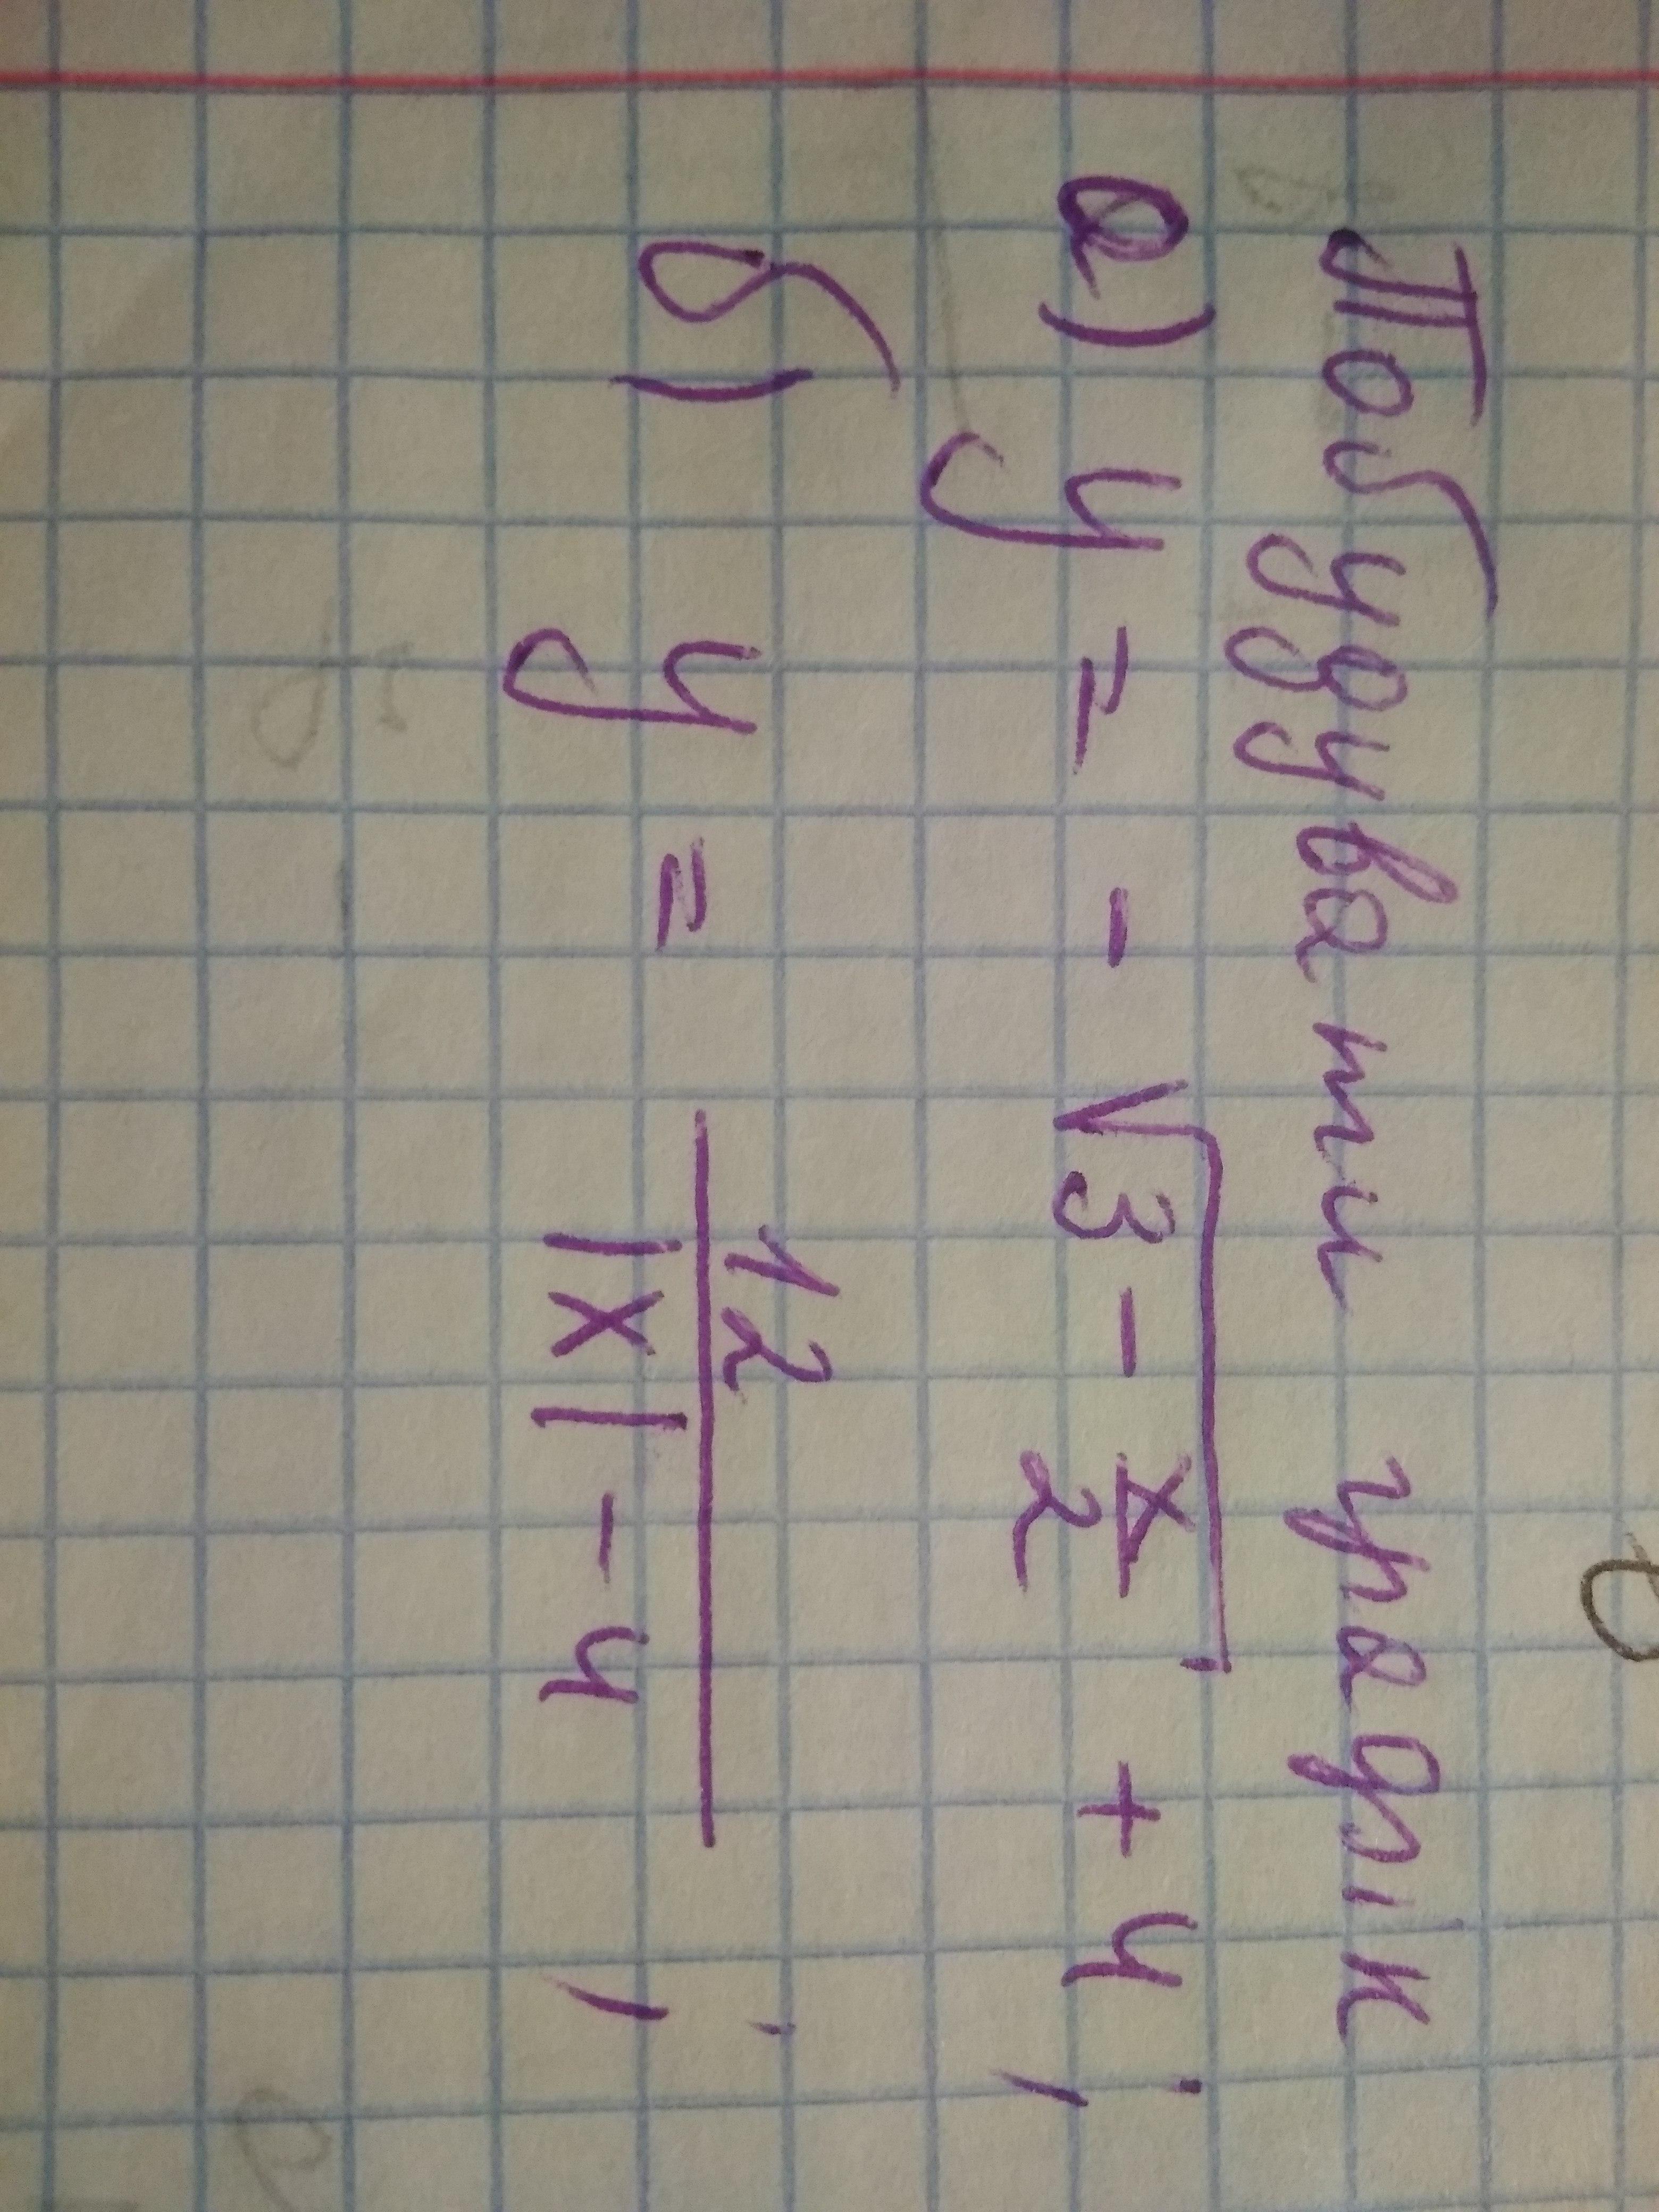 Побудувати графік
а) y = - √3 - x/2 + 4 ;
б) y = 12/|x| - 4 ;